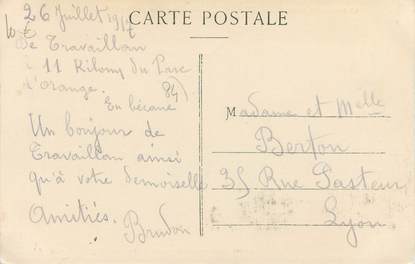 CARTE POSTALE
26 Juillet 1917
De Travaillan
à 11 Kilom du Parc
d'Orange.
En bécane 84)
Un bonjour de
Travaillan ainsi
qu'à votre demoiselle
Amitiés. Brudon
Madame et Melle
Berton
35 Rue Pasteur
Lyon